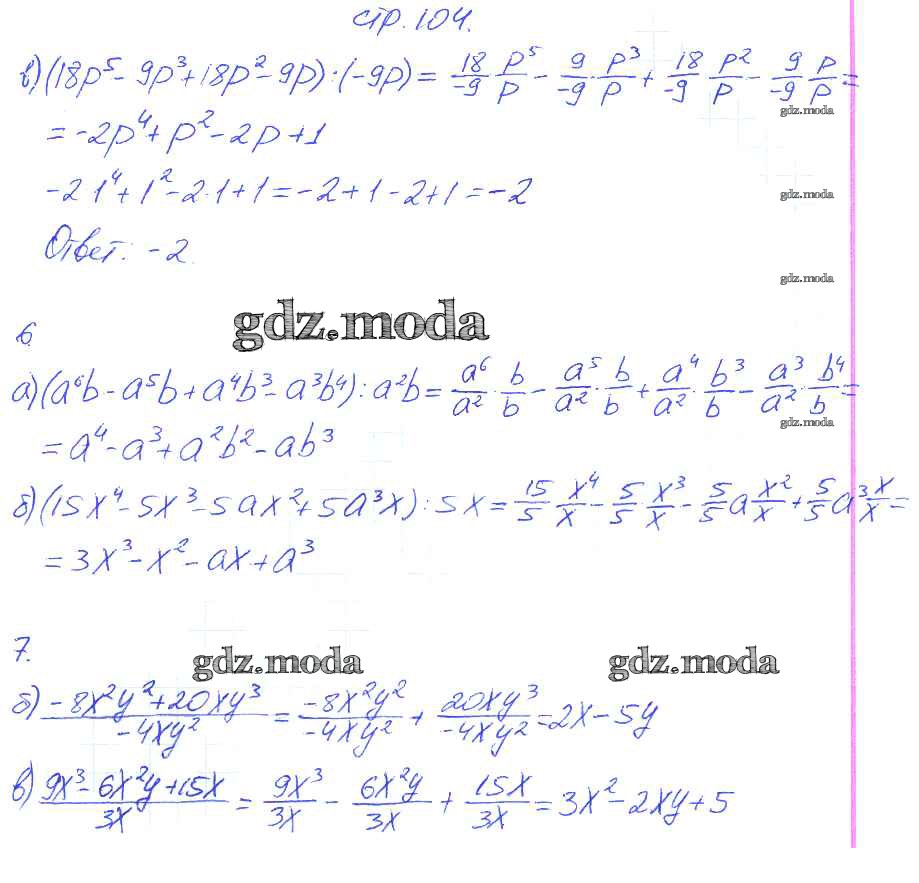 стр. 104.
в) (18p⁵ - 9p³ + 18p² - 9p) : (-9p) = 18/-9 p⁵/p - 9/-9 · p³/p + 18/-9 p²/p - 9/-9 p/p =
gdz.moda
= -2p⁴ + p² - 2p + 1
-2·1⁴ + 1² - 2·1 + 1 = -2 + 1 - 2 + 1 = -2
gdz.moda
Ответ: -2
gdz.moda
6
gdz.moda
а) (a⁶b - a⁵b + a⁴b³ - a³b⁴) : a²b = a⁶/a² · b/b - a⁵/a² · b/b + a⁴/a² · b³/b - a³/a² · b⁴/b =
gdz.moda
= a⁴ - a³ + a²b² - ab³
б) (15x⁴ - 5x³ - 5ax² + 5a³x) : 5x = 15/5 x⁴/x - 5/5 x³/x - 5/5 a x²/x + 5/5 a³ x/x =
= 3x³ - x² - ax + a³
7.
gdz.moda gdz.moda
б) (-8x²y² + 20xy³)/(-4xy²) = -8x²y²/-4xy² + 20xy³/-4xy² = 2x - 5y
в) (9x³ - 6x²y + 15x)/3x = 9x³/3x - 6x²y/3x + 15x/3x = 3x² - 2xy + 5